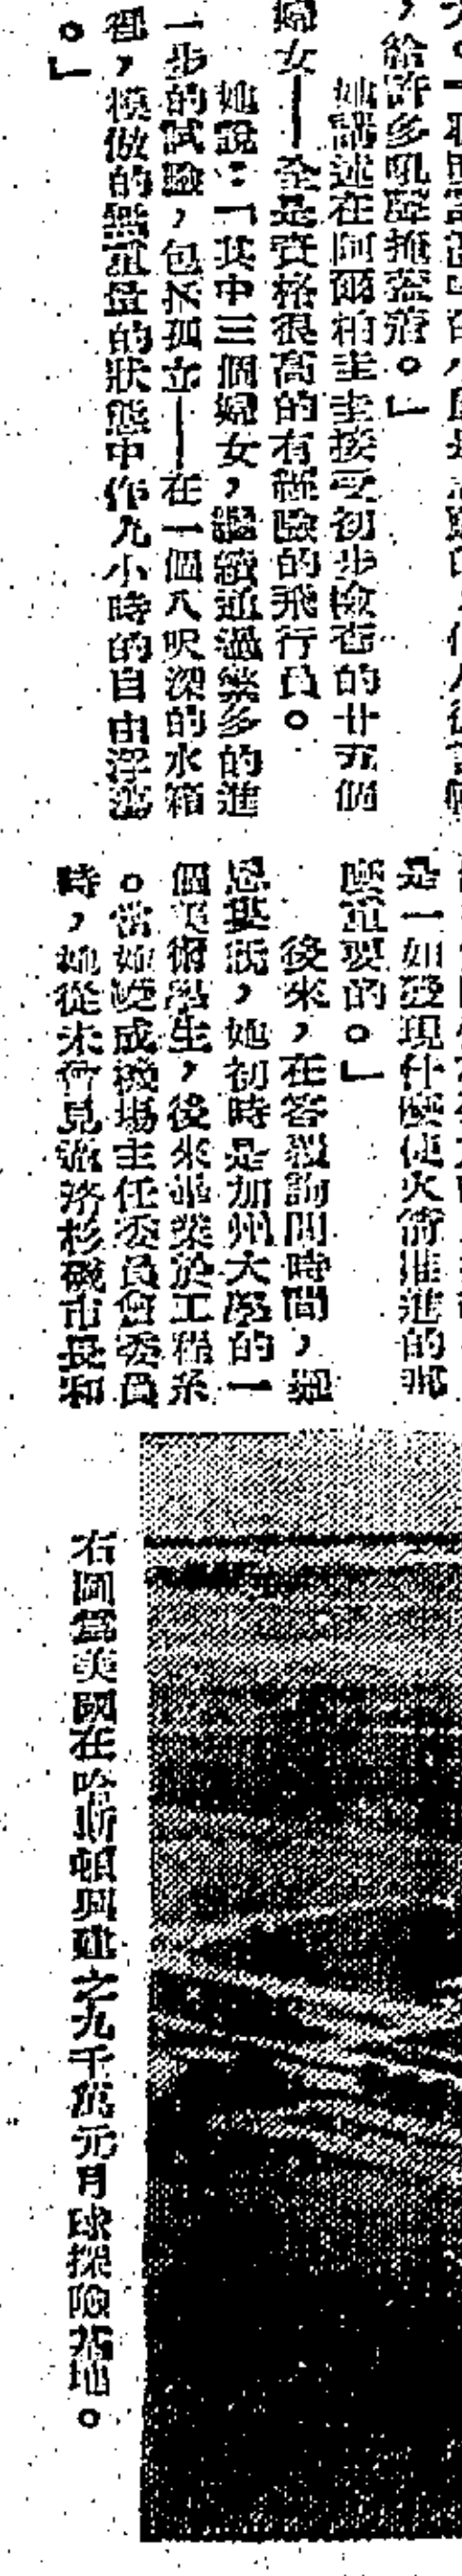 ，給許多吼聲掩蓋着。」
她講述在阿爾柏圭圭接受初步檢查的廿五個
婦女——全是資格很高的有經驗的飛行員。
她說：「其中三個婦女，繼續通過繁多的進
一步的試驗，包括孤立——在一個八呎深的水箱
裡，模倣的無重量的狀態中作九小時的自由浮游
。」
是一如發現什麼使火箭推進的那
麼重要的。」
後來，在答覆詢問時間，
她初時是加州大學的一
個美術學生，後來畢業於工程系
。當她變成機場主任委員會委員
時，她從未曾見過洛杉磯市長和
右圖爲美國在哈斯頓興建之九千萬元月球探險基地。